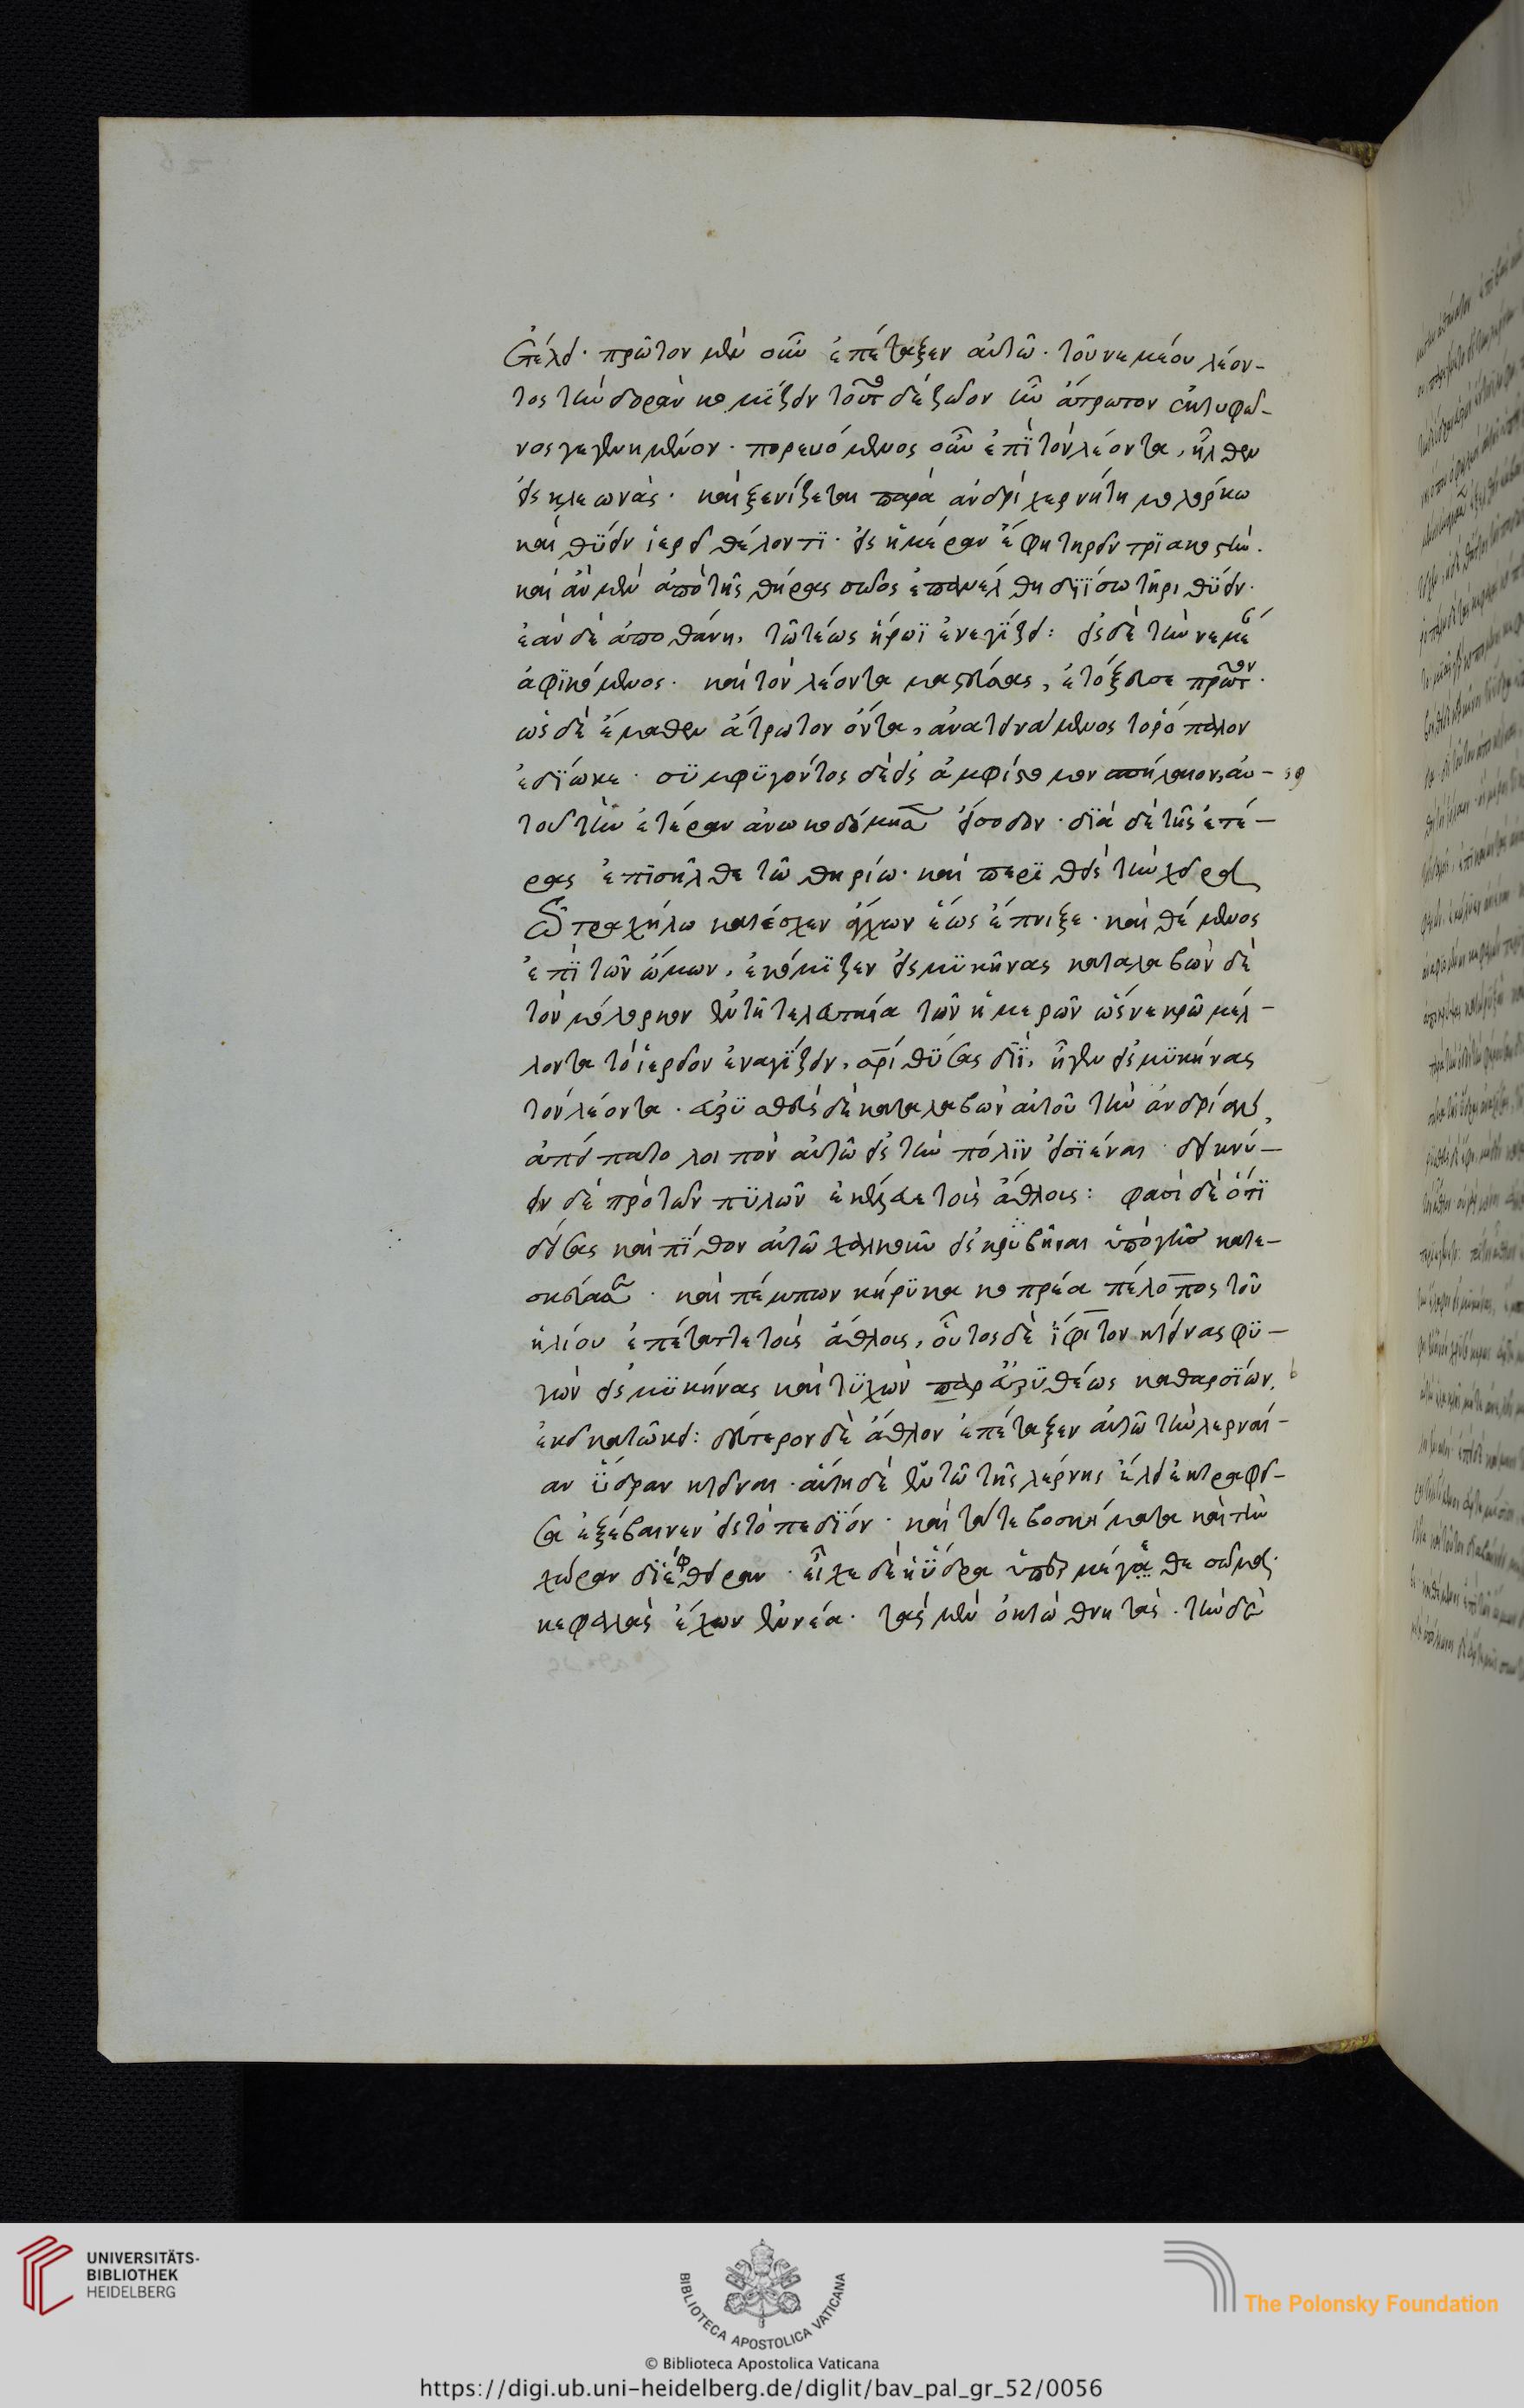 ἐτέλει· πρῶτον μὲν οὖν ἐπέταξεν αὐτῶ· τοῦ νεμέου λέον-
τος τὴν δορὰν κομίζειν τοῦτο δὲ ζῶον ἦν ἄτρωτον ἐκ τυφῶ-
νος γεγενημένον· πορευόμενος οὖν ἐπὶ τὸν λέοντα, ἦλθεν
εἰς κλεωνὰς· καὶ ξενίζεται παρὰ ἀνδρὶ χερνήτη μολόρκω
καὶ θύειν ἱερεῖ θέλοντι· εἰς ἡμέραν ἔφη τηρεῖν τριακοστὴν.
καὶ ἂν μὲν ἀπὸ τῆς θήρας σῶος ἐπανέλθη διῒ σωτῆρι θύειν.
ἐὰν δὲ ἀποθάνη, τῶ τέως ἥρωϊ ἐναγίζει: εἰς δὲ τὴν νεμέ
ἀφικόμενος· καὶ τὸν λέοντα μαστεύσας, ἐτόξευσε πρῶτον.
ὡς δὲ ἔμαθεν ἄτρωτον ὄντα, ἀνατεινάμενος τὸ ῥόπαλον
ἐδίωκε· συμφυγόντος δὲ εἰς ἀμφίστομον σπήλαιον, αὐ-
τοῦ τὴν ἑτέραν ἀνωκοδόμησεν εἴσοδον· διὰ δὲ τῆς ἑτέ-
ρας ἐπισῆλθε τῶ θηρίω· καὶ περιθεὶς τὴν χεῖρα
τῶ τραχήλω κατέσχεν ἄγχων ἕως ἔπνιξε· καὶ θέμενος
ἐπὶ τῶν ὤμων, ἐκόμιζεν εἰς μυκήνας καταλαβὼν δὲ
τὸν μόλορκον ἐν τῆ τελευταία τῶν ἡμερῶν ὡς νεκρῶ μέλ-
λοντα τὸ ἱερεῖον ἐναγίζειν, σωτῆρι θύσας διῒ, ἦγεν εἰς μυκήνας
τὸν λέοντα· εὐρυσθεὺς δὲ καταλαβὼν αὐτοῦ τὴν ἀνδρίαν,
ἀπείπατο λοιπὸν αὐτῶ εἰς τὴν πόλιν εἰσιέναι· δεικνύ-
ειν δὲ πρὸ τῶν πυλῶν ἐκέλευε τοὺς ἄθλους: φασὶ δὲ ὅτι
δείσας καὶ πίθον αὐτῶ χαλκοῦν εἰσκρυβῆναι ὑπὸ γῆν κατε-
σκεύασε· καὶ πέμπων κήρυκα κοπρέα πέλοπος τοῦ
ἠλίου ἐπέταττε τοὺς ἄθλους, οὗτος δὲ ἴφιτον κτείνας φυ-
γὼν εἰς μυκήνας καὶ τυχὼν παρ εὐρυσθέως καθαρσίων,
ἐκεῖ κατώκει: δεύτερον δὲ ἆθλον ἐπέταξεν αὐτῶ τὴν λερναί-
αν ὕδραν κτεῖναι· αὕτη δὲ ἐν τῶ τῆς λέρνης ἕλει ἐκτραφεῖ-
σα ἐξέβαινεν εἰς τὸ πεδίον· καὶ τά τε βοσκήματα καὶ τὴν
χώραν διέφθειρεν· εἶχε δὲ ἡ ὕδρα ὑπερμέγεθε σῶμα·
κεφαλὰς ἔχων ἐννέα· τὰς μὲν ὀκτὼ θνητὰς· τὴν δὲ
UNIVERSITÄTS-
BIBLIOTHEK
HEIDELBERG
BIBLIOTECA APOSTOLICA VATICANA
The Polonsky Foundation
© Biblioteca Apostolica Vaticana
https://digi.ub.uni-heidelberg.de/diglit/bav_pal_gr_52/0056